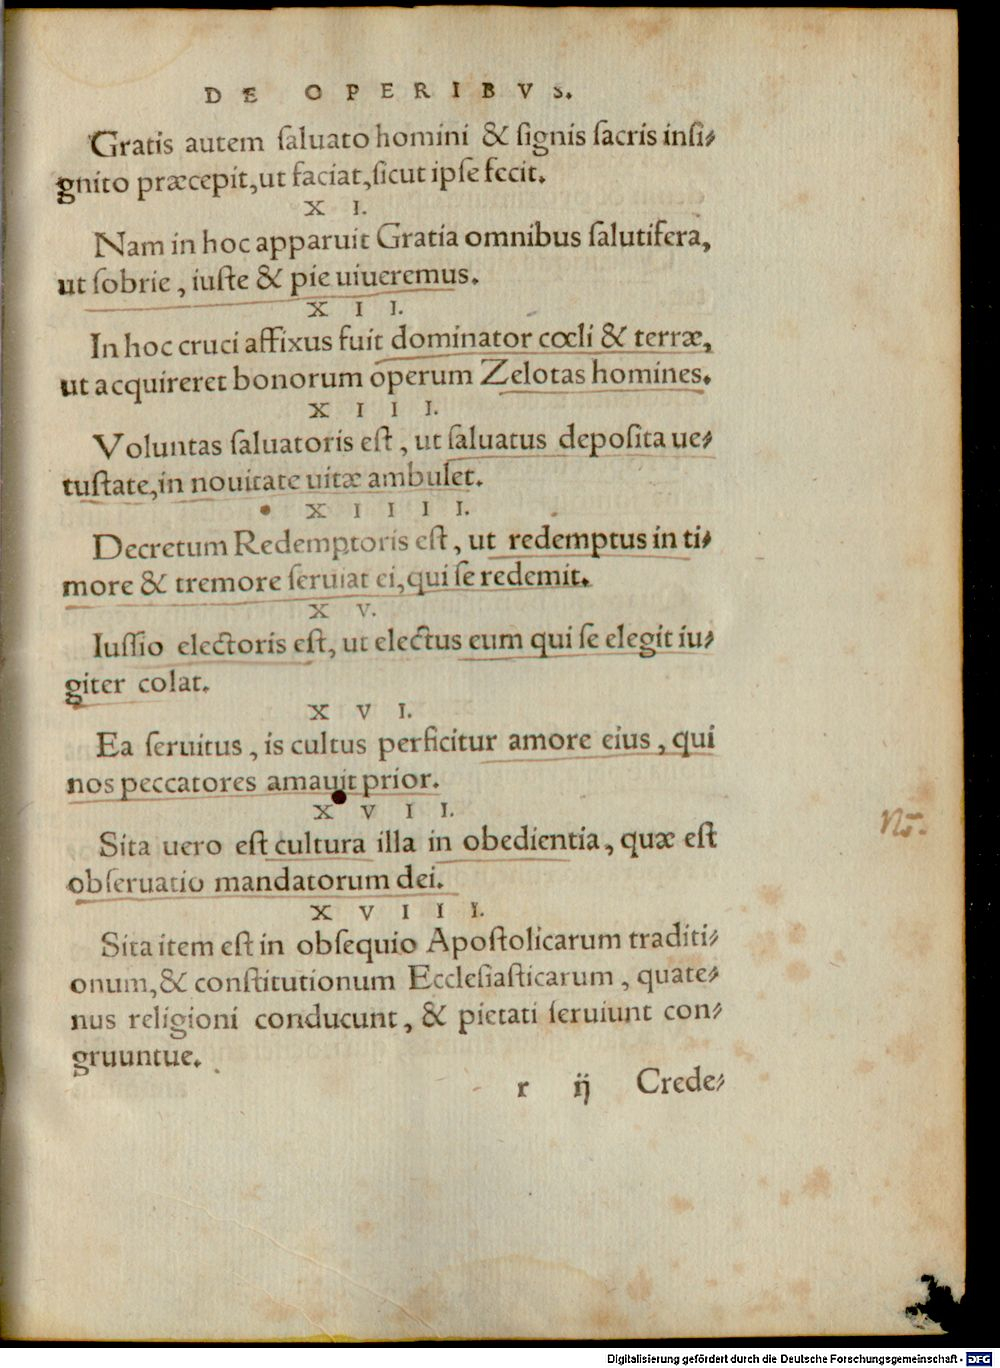 DE OPERIBVS.
Gratis autem ſaluato homini & ſignis ſacris inſi⸗
gnito præcepit,ut faciat,ſicut ipſe fecit.
X I.
Nam in hoc apparuit Gratia omnibus ſalutifera,
ut ſobrie, iuſte & pie uiueremus.
X I I.
In hoc cruci affixus fuit dominator cœli & terræ,
ut acquireret bonorum operum Zelotas homines.
X I I I.
Voluntas ſaluatoris eſt, ut ſaluatus depoſita ue⸗
tuſtate,in nouitate uitæ ambulet.
X I I I I.
Decretum Redemptoris eſt, ut redemptus in ti⸗
more & tremore ſeruiat ei,qui ſe redemit.
X V.
Iuſſio electoris eſt, ut electus eum qui ſe elegit iu⸗
giter colat.
X V I.
Ea ſeruitus, is cultus perficitur amore eius, qui
nos peccatores amauit prior.
X V I I.
Sita uero eſt cultura illa in obedientia, quæ eſt
obſeruatio mandatorum dei.
X V I I I.
Sita item eſt in obſequio Apoſtolicarum traditi⸗
onum,& conſtitutionum Eccleſiaſticarum, quate⸗
nus religioni conducunt, & pietati ſeruiunt con⸗
gruuntue.
r ij Crede⸗
Digitalisierung gefördert durch die Deutsche Forschungsgemeinschaft - DFG